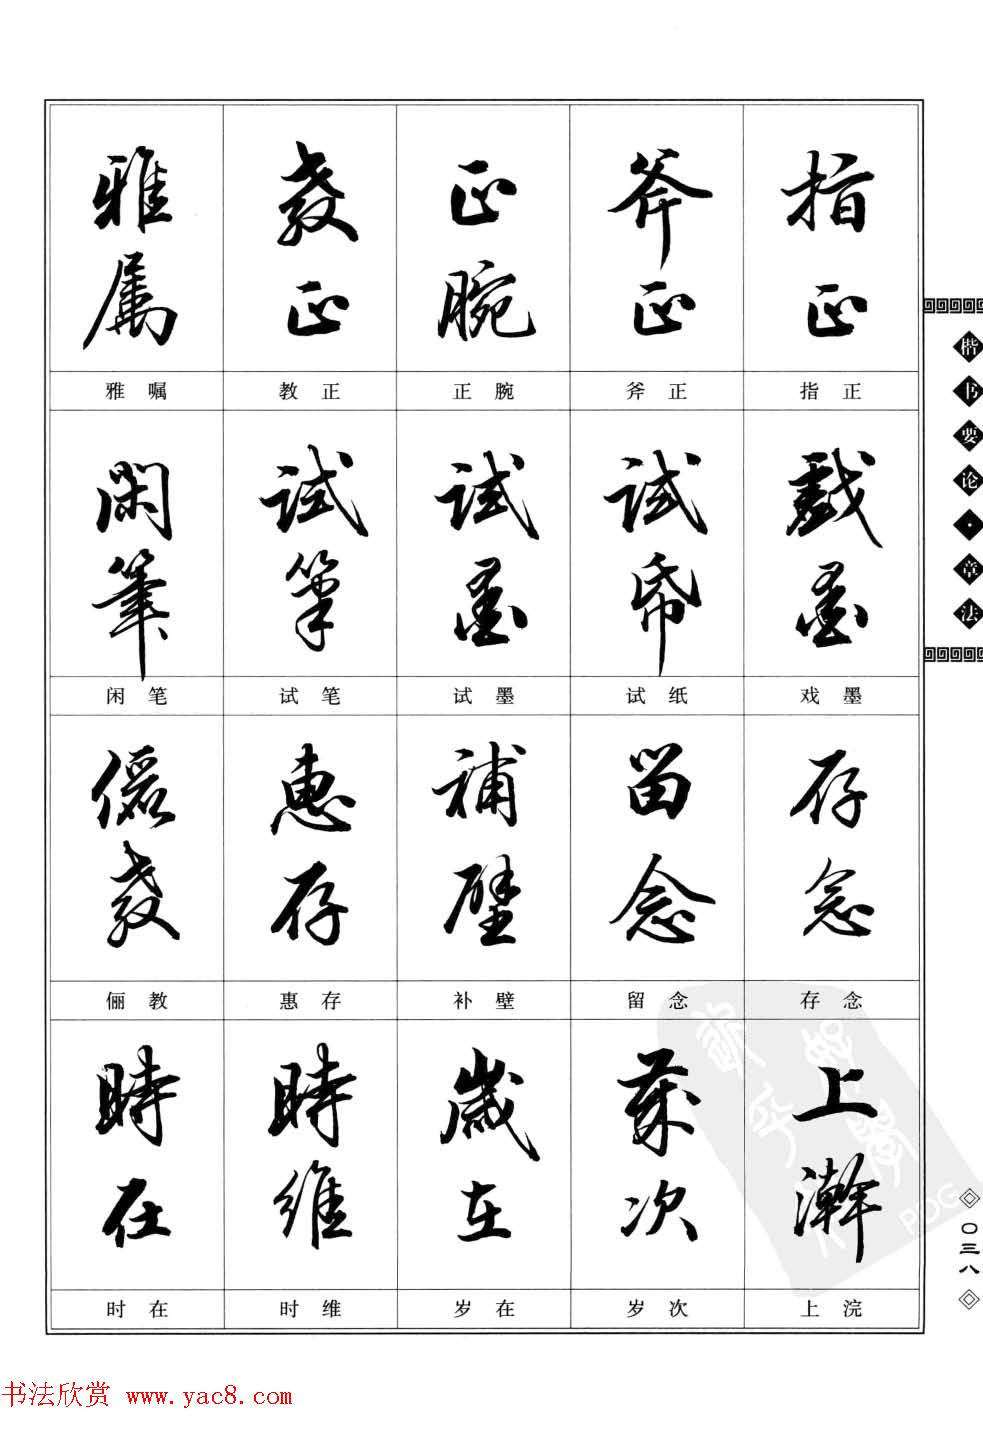 雅属
教正
正腕
斧正
指正
雅嘱
教正
正腕
斧正
指正
閑筆
试筆
试墨
试帋
戲墨
闲笔
试笔
试墨
试纸
戏墨
儷教
惠存
補壁
留念
存念
俪教
惠存
补壁
留念
存念
時在
時維
歲在
歲次
上澣
时在
时维
岁在
岁次
上浣
楷书要论·章法
〇三八
PDG
书法欣赏 www.yac8.com